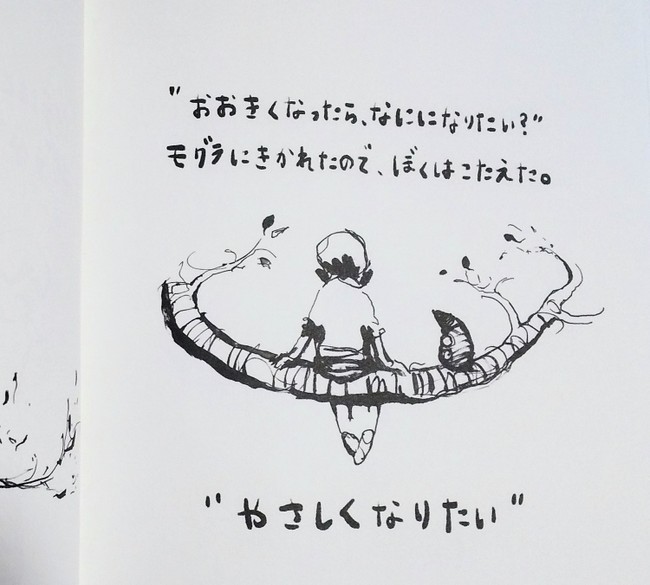 "おおきくなったら、なにになりたい?"
モグラにきかれたので、ぼくはこたえた。
"やさしくなりたい"